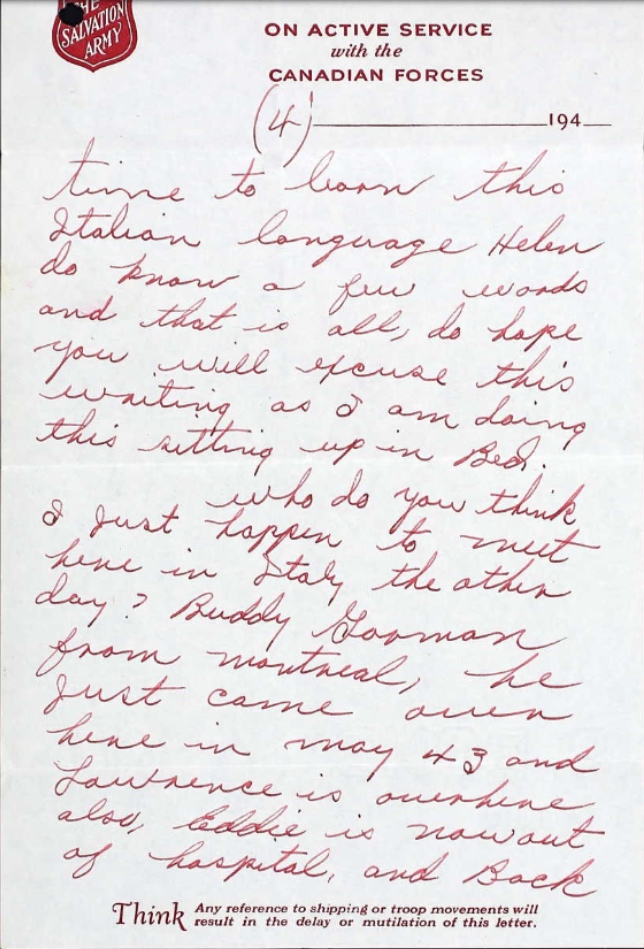 THE
SALVATION
ARMY
ON ACTIVE SERVICE
with the
CANADIAN FORCES
(4) 194
time to learn this
Italian language Helen
do know a few words
and that is all, do hope
you will excuse this
writing as I am doing
this sitting up in Bed.
who do you think
I Just happen to meet
here in Italy the other
day? Buddy Gorman
from montreal, he
Just came over
here in may 43 and
Lawrence is overhere
also, Eddie is now out
of hospital, and Back
Think Any reference to shipping or troop movements will
result in the delay or mutilation of this letter.